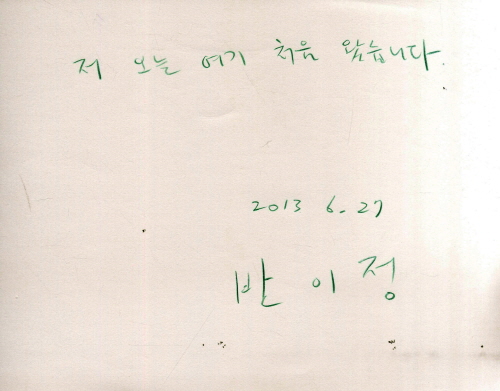 저 오늘 여기 처음 왔습니다.
2013 6. 27
반 이 정